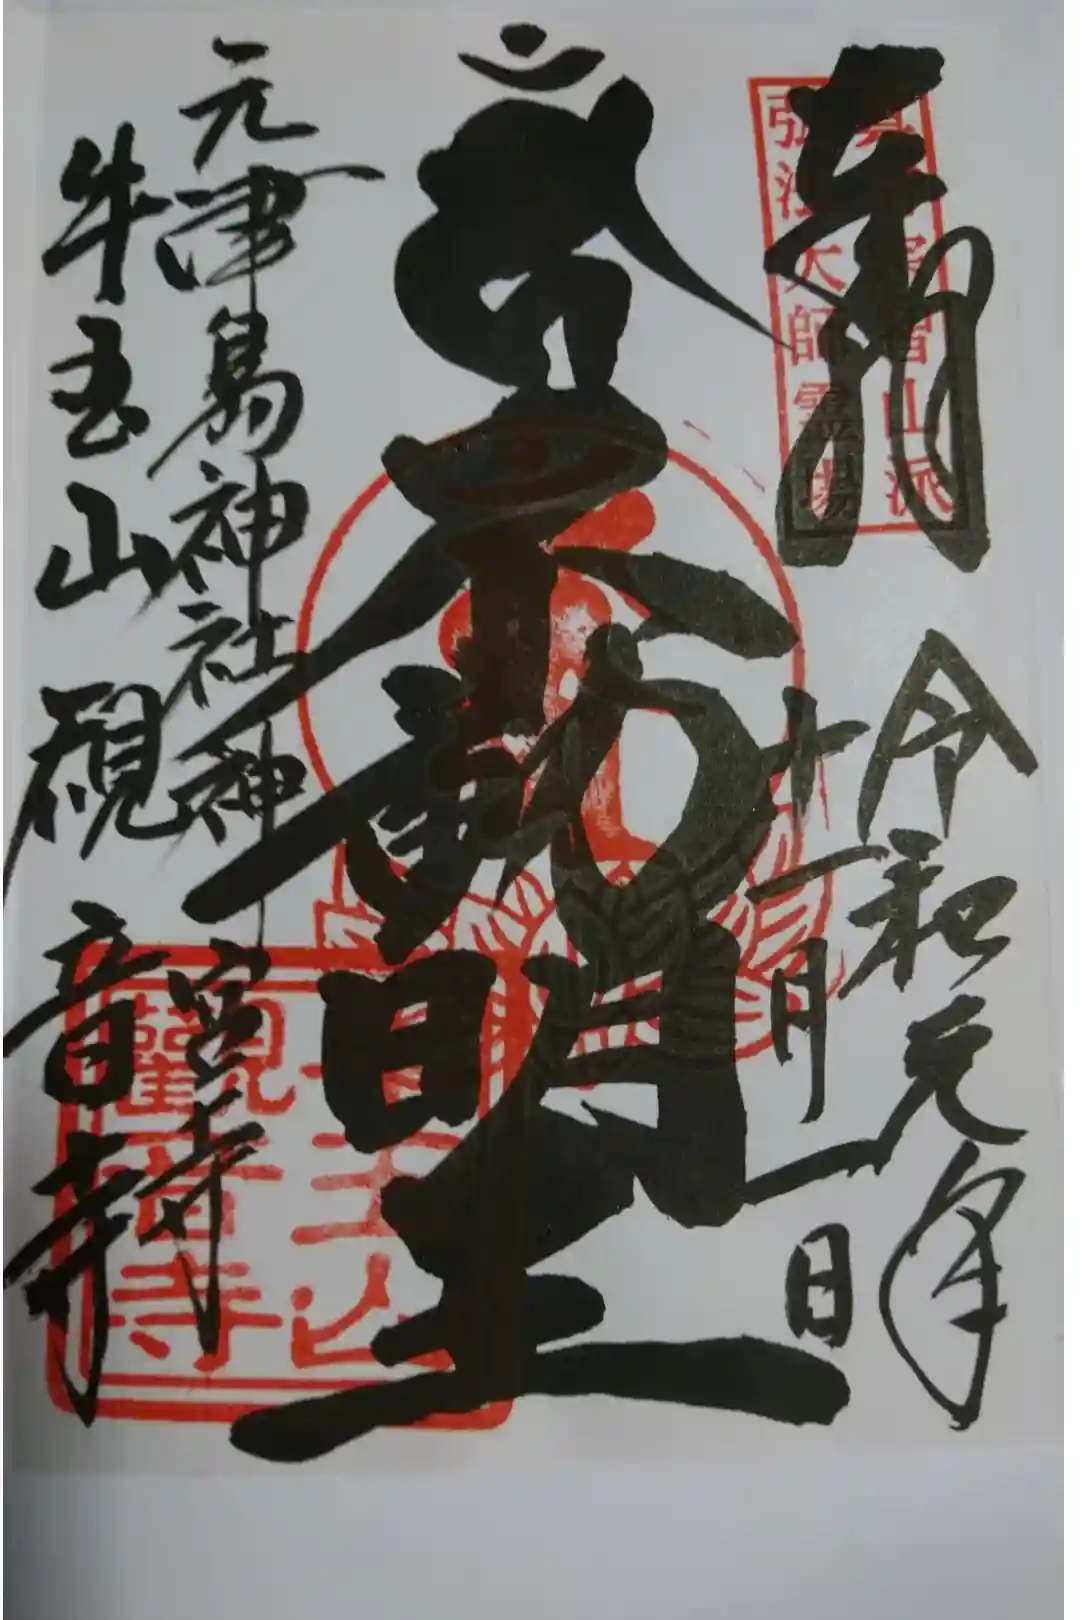 奉拝
真言宗智山派
弘法大師霊場
令和元年
十一月一日
不動明王
元津島神社神宮寺
牛玉山観音寺
牛王山
観音寺